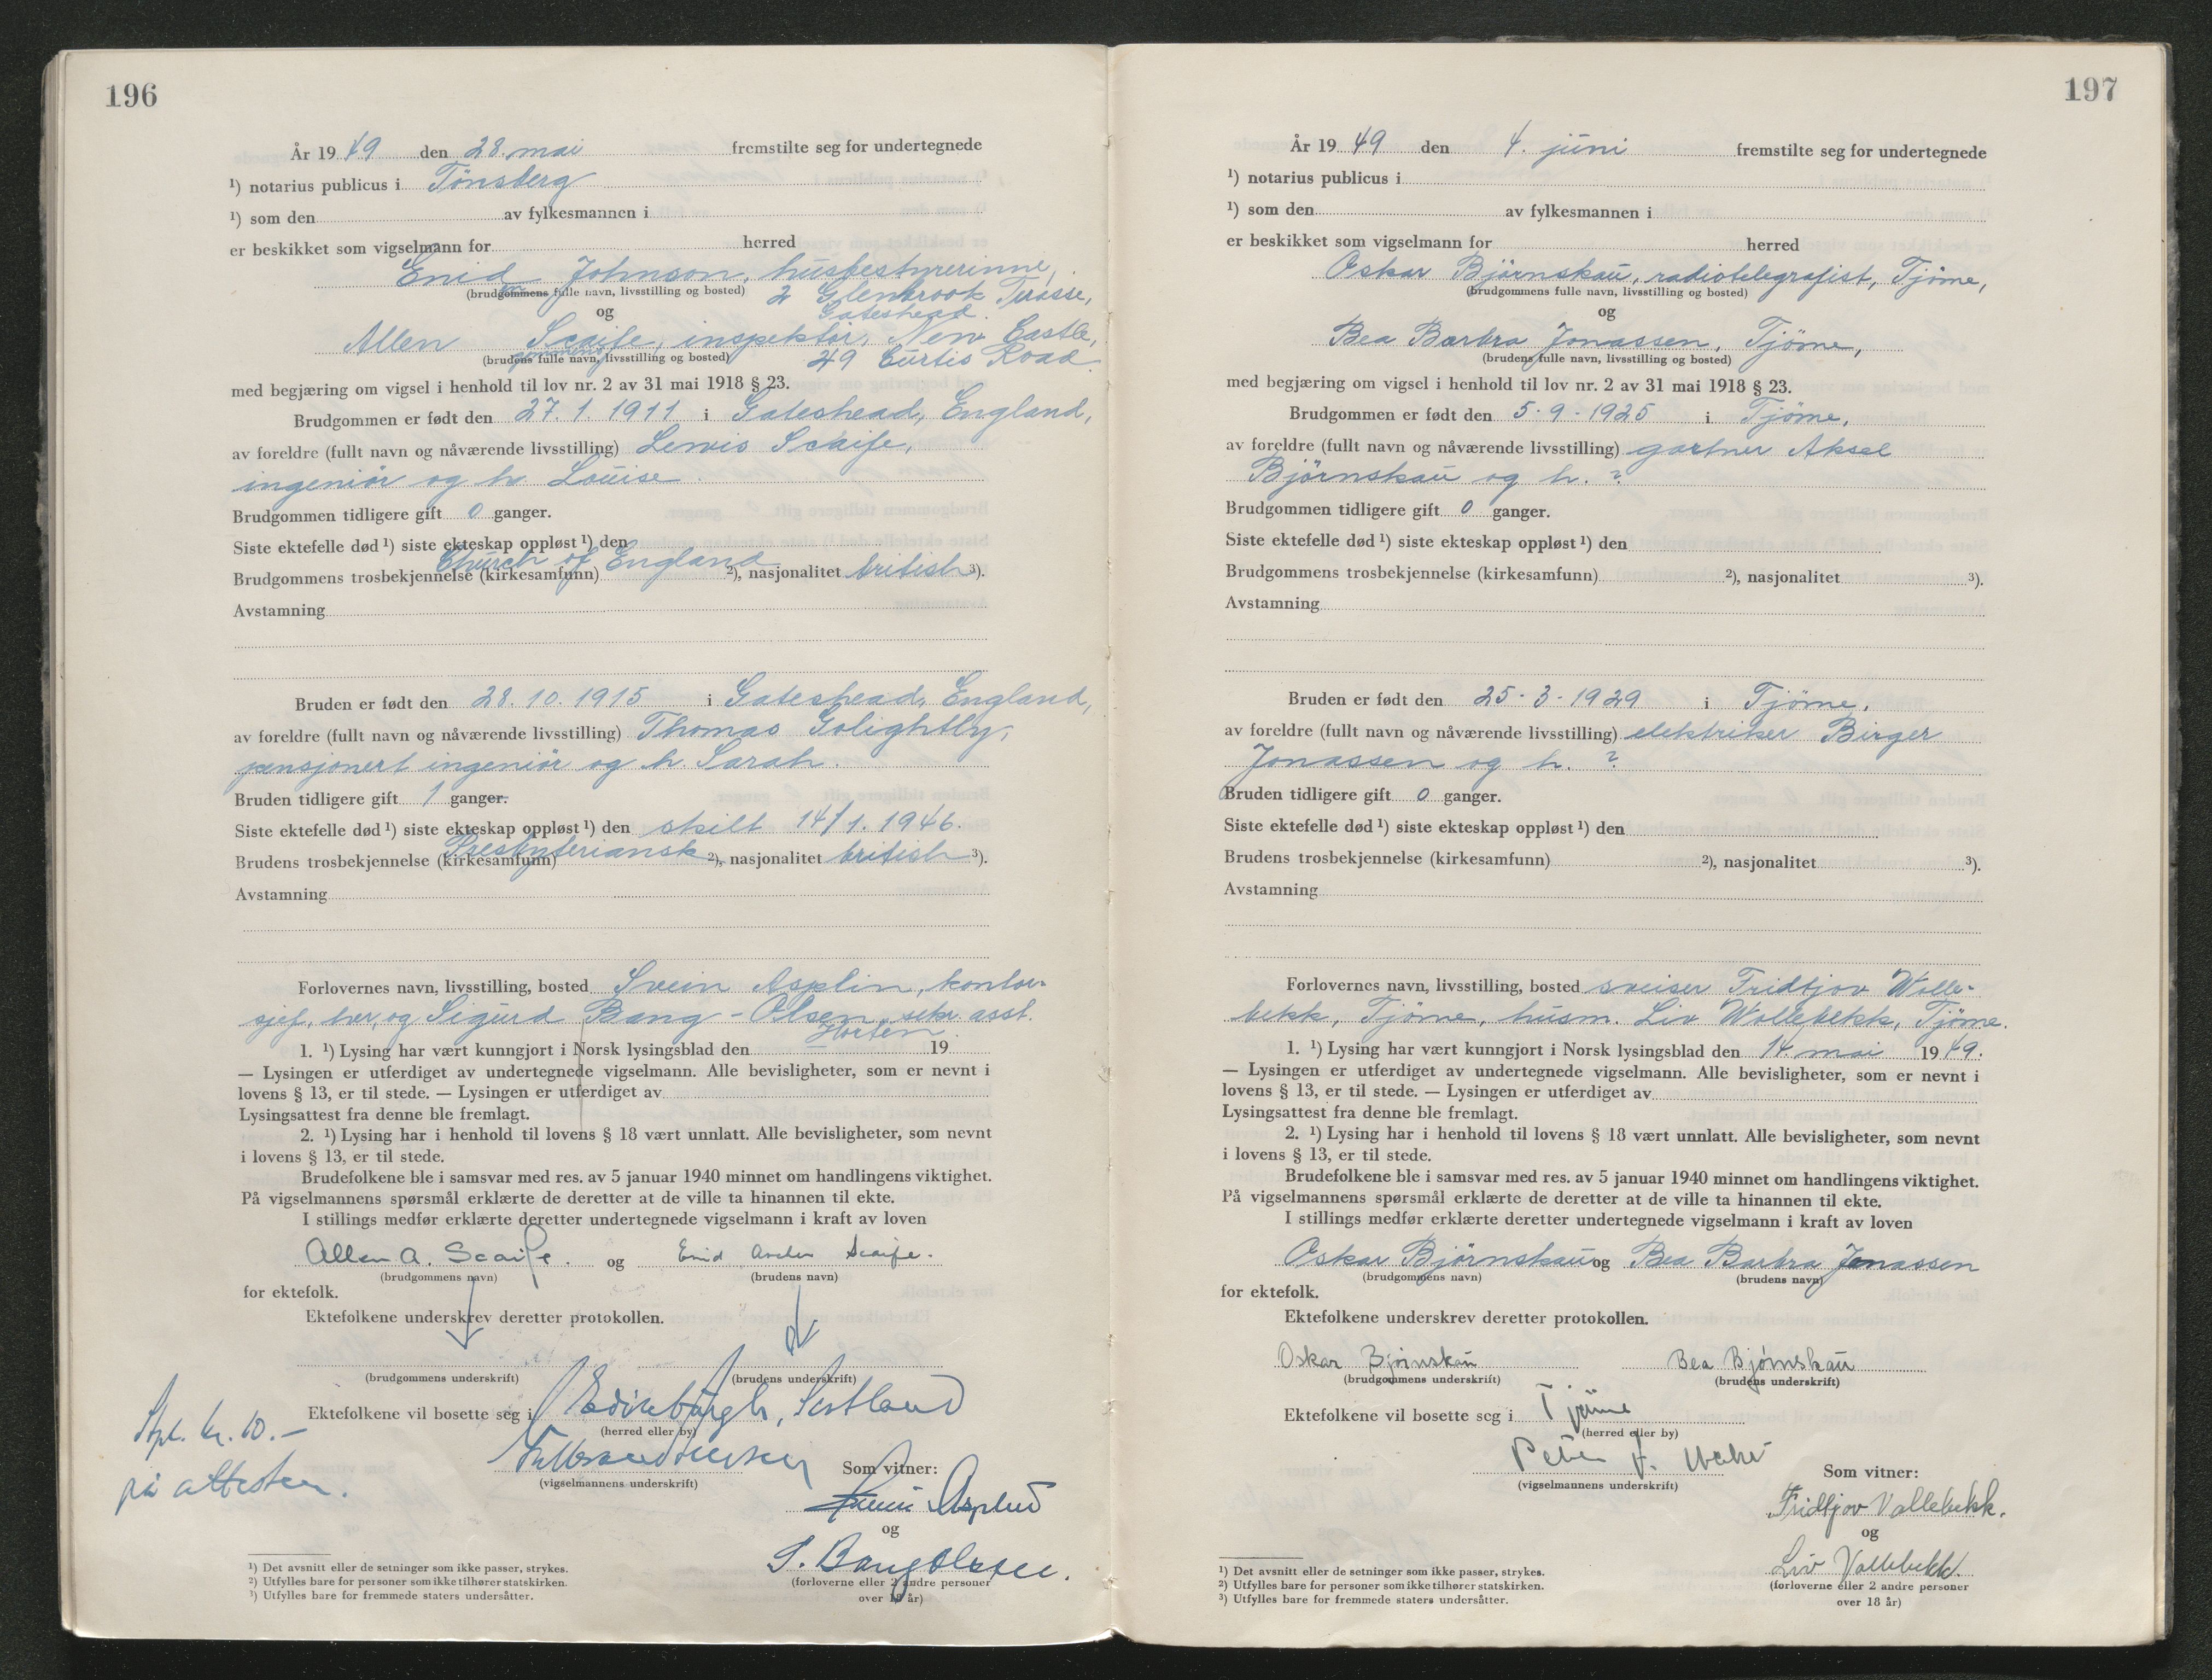 196
År 1949 den 28. mai fremstilte seg for undertegnede
¹) notarius publicus i Tönsberg
¹) som den av fylkesmannen i
er beskikket som vigselmann for herred
Enid Johnson, husbestyrerinne,
(brudgommens fulle navn, livsstilling og bosted) 2 Glenbrook Terasse,
og Gateshead.
Allen Scaife, inspektör, New Castle,
(brudens fulle navn, livsstilling og bosted) 49 Curtis Road.
med begjæring om vigsel i henhold til lov nr. 2 av 31 mai 1918 § 23.
Brudgommen er født den 27. 1. 1911 i Gateshead, England,
av foreldre (fullt navn og nåværende livsstilling) Lewis Scaife,
ingeniör og h. Louise.
Brudgommen tidligere gift 0 ganger.
Siste ektefelle død ¹) siste ekteskap oppløst ¹) den
Church of England
Brudgommens trosbekjennelse (kirkesamfunn) ²), nasjonalitet british ³).
Avstamning
Bruden er født den 28. 10. 1915 i Gateshead, England,
av foreldre (fullt navn og nåværende livsstilling) Thomas Golightly,
pensjonert ingeniör og h. Sarah.
Bruden tidligere gift 1 ganger.
Siste ektefelle død ¹) siste ekteskap oppløst ¹) den skilt 14/1. 1946.
Presbyteriansk
Brudens trosbekjennelse (kirkesamfunn) ²), nasjonalitet british ³).
Avstamning
Forlovernes navn, livsstilling, bosted Svein Asplin, kontor-
sjef, her, og Sigurd Bang-Olsen, sekr. asst.
Horten
1. ¹) Lysing har vært kunngjort i Norsk lysingsblad den 19
— Lysingen er utferdiget av undertegnede vigselmann. Alle bevisligheter, som er nevnt i
lovens § 13, er til stede. — Lysingen er utferdiget av
Lysingsattest fra denne ble fremlagt.
2. ¹) Lysing har i henhold til lovens § 18 vært unnlatt. Alle bevisligheter, som nevnt
i lovens § 13, er til stede.
Brudefolkene ble i samsvar med res. av 5 januar 1940 minnet om handlingens viktighet.
På vigselmannens spørsmål erklærte de deretter at de ville ta hinannen til ekte.
I stillings medfør erklærte deretter undertegnede vigselmann i kraft av loven
Allen A. Scaife. og Enid Scaife.
(brudgommens navn) (brudens navn)
for ektefolk.
Ektefolkene underskrev deretter protokollen.
(brudgommens underskrift) (brudens underskrift)
Ektefolkene vil bosette seg i Edinburgh, Scotland
(herred eller by)
Stpl. kr. 10.—
på attesten.
(vigselmannens underskrift)
Som vitner:
Svein Asplin
og
S. Bang Olsen.
(forloverne eller 2 andre personer
over 18 år)
¹) Det avsnitt eller de setninger som ikke passer, strykes.
²) Utfylles bare for personer som ikke tilhører statskirken.
³) Utfylles bare for fremmede staters undersåtter.
197
År 1949 den 4. juni fremstilte seg for undertegnede
¹) notarius publicus i
¹) som den av fylkesmannen i
er beskikket som vigselmann for herred
Oskar Björnskau, radiotelegrafist, Tjöme,
(brudgommens fulle navn, livsstilling og bosted)
og
Bea Barbra Jonassen, Tjöme,
(brudens fulle navn, livsstilling og bosted)
med begjæring om vigsel i henhold til lov nr. 2 av 31 mai 1918 § 23.
Brudgommen er født den 5-9-1925 i Tjöme,
av foreldre (fullt navn og nåværende livsstilling) gartner Aksel
Björnskau og h. ?
Brudgommen tidligere gift 0 ganger.
Siste ektefelle død ¹) siste ekteskap oppløst ¹) den
Brudgommens trosbekjennelse (kirkesamfunn) ²), nasjonalitet ³).
Avstamning
Bruden er født den 25-3-1929 i Tjöme,
av foreldre (fullt navn og nåværende livsstilling) elektriker Birger
Jonassen og h. ?
Bruden tidligere gift 0 ganger.
Siste ektefelle død ¹) siste ekteskap oppløst ¹) den
Brudens trosbekjennelse (kirkesamfunn) ²), nasjonalitet ³).
Avstamning
Forlovernes navn, livsstilling, bosted sveiser Fridtjov Wolle-
bekk, Tjöme, husm. Liv Wollebekk, Tjöme.
1. ¹) Lysing har vært kunngjort i Norsk lysingsblad den 14. mai 1949.
— Lysingen er utferdiget av undertegnede vigselmann. Alle bevisligheter, som er nevnt i
lovens § 13, er til stede. — Lysingen er utferdiget av
Lysingsattest fra denne ble fremlagt.
2. ¹) Lysing har i henhold til lovens § 18 vært unnlatt. Alle bevisligheter, som nevnt
i lovens § 13, er til stede.
Brudefolkene ble i samsvar med res. av 5 januar 1940 minnet om handlingens viktighet.
På vigselmannens spørsmål erklærte de deretter at de ville ta hinannen til ekte.
I stillings medfør erklærte deretter undertegnede vigselmann i kraft av loven
Oskar Björnskau og Bea Barbra Jonassen
(brudgommens navn) (brudens navn)
for ektefolk.
Ektefolkene underskrev deretter protokollen.
Oskar Björnskau Bea Bjørnskau
(brudgommens underskrift) (brudens underskrift)
Ektefolkene vil bosette seg i Tjöme
(herred eller by)
Peter
(vigselmannens underskrift)
Som vitner:
Fridtjov Vollebekk.
og
Liv Vollebekk.
(forloverne eller 2 andre personer
over 18 år)
¹) Det avsnitt eller de setninger som ikke passer, strykes.
²) Utfylles bare for personer som ikke tilhører statskirken.
³) Utfylles bare for fremmede staters undersåtter.